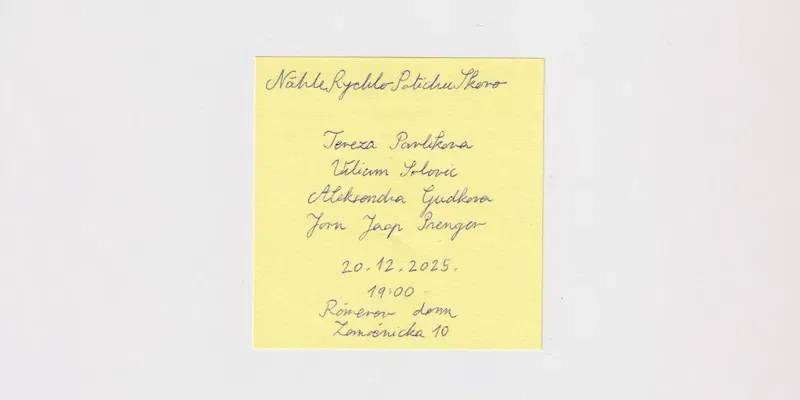 NáhleRychloPotichuSkoro
Tereza Pavlikova
Viliam Solovic
Aleksandra Gudkova
Jorn Jaap Prenger
20.12.2025.
19:00
Rómerov dom
Zámočnícka 10